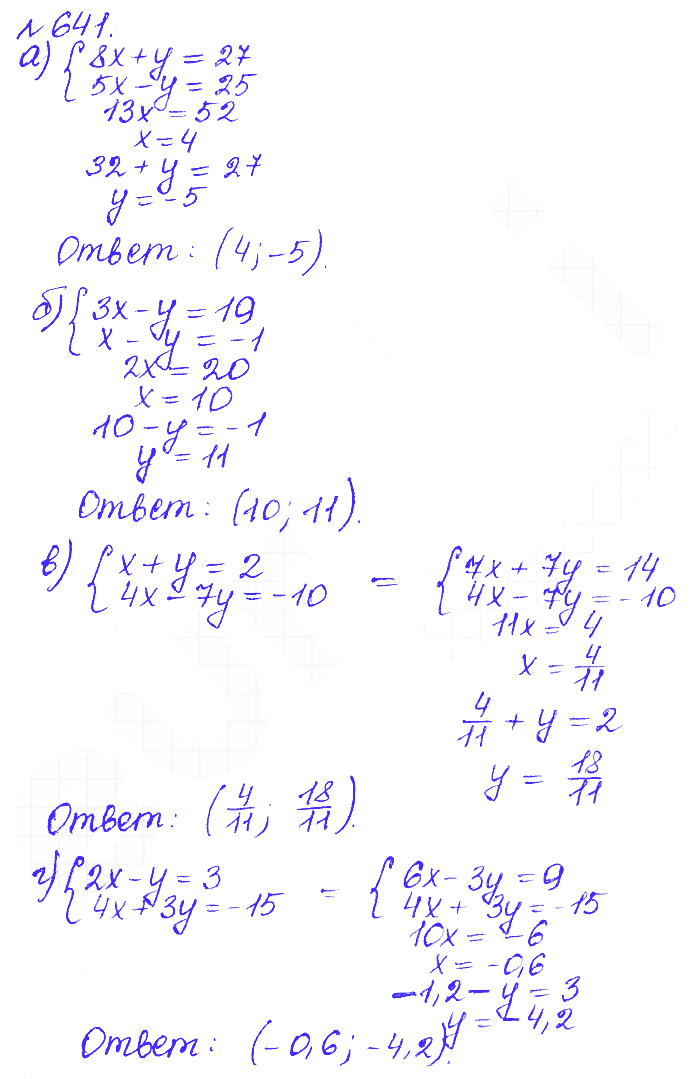 № 641.
а) { 8x + y = 27
5x - y = 25
13x = 52
x = 4
32 + y = 27
y = -5
Ответ: (4; -5).
б) { 3x - y = 19
x - y = -1
2x = 20
x = 10
10 - y = -1
y = 11
Ответ: (10; 11).
в) { x + y = 2
4x - 7y = -10
= { 7x + 7y = 14
4x - 7y = -10
11x = 4
x = 4/11
4/11 + y = 2
y = 18/11
Ответ: (4/11; 18/11).
г) { 2x - y = 3
4x + 3y = -15
= { 6x - 3y = 9
4x + 3y = -15
10x = -6
x = -0,6
-1,2 - y = 3
y = -4,2
Ответ: (-0,6; -4,2).